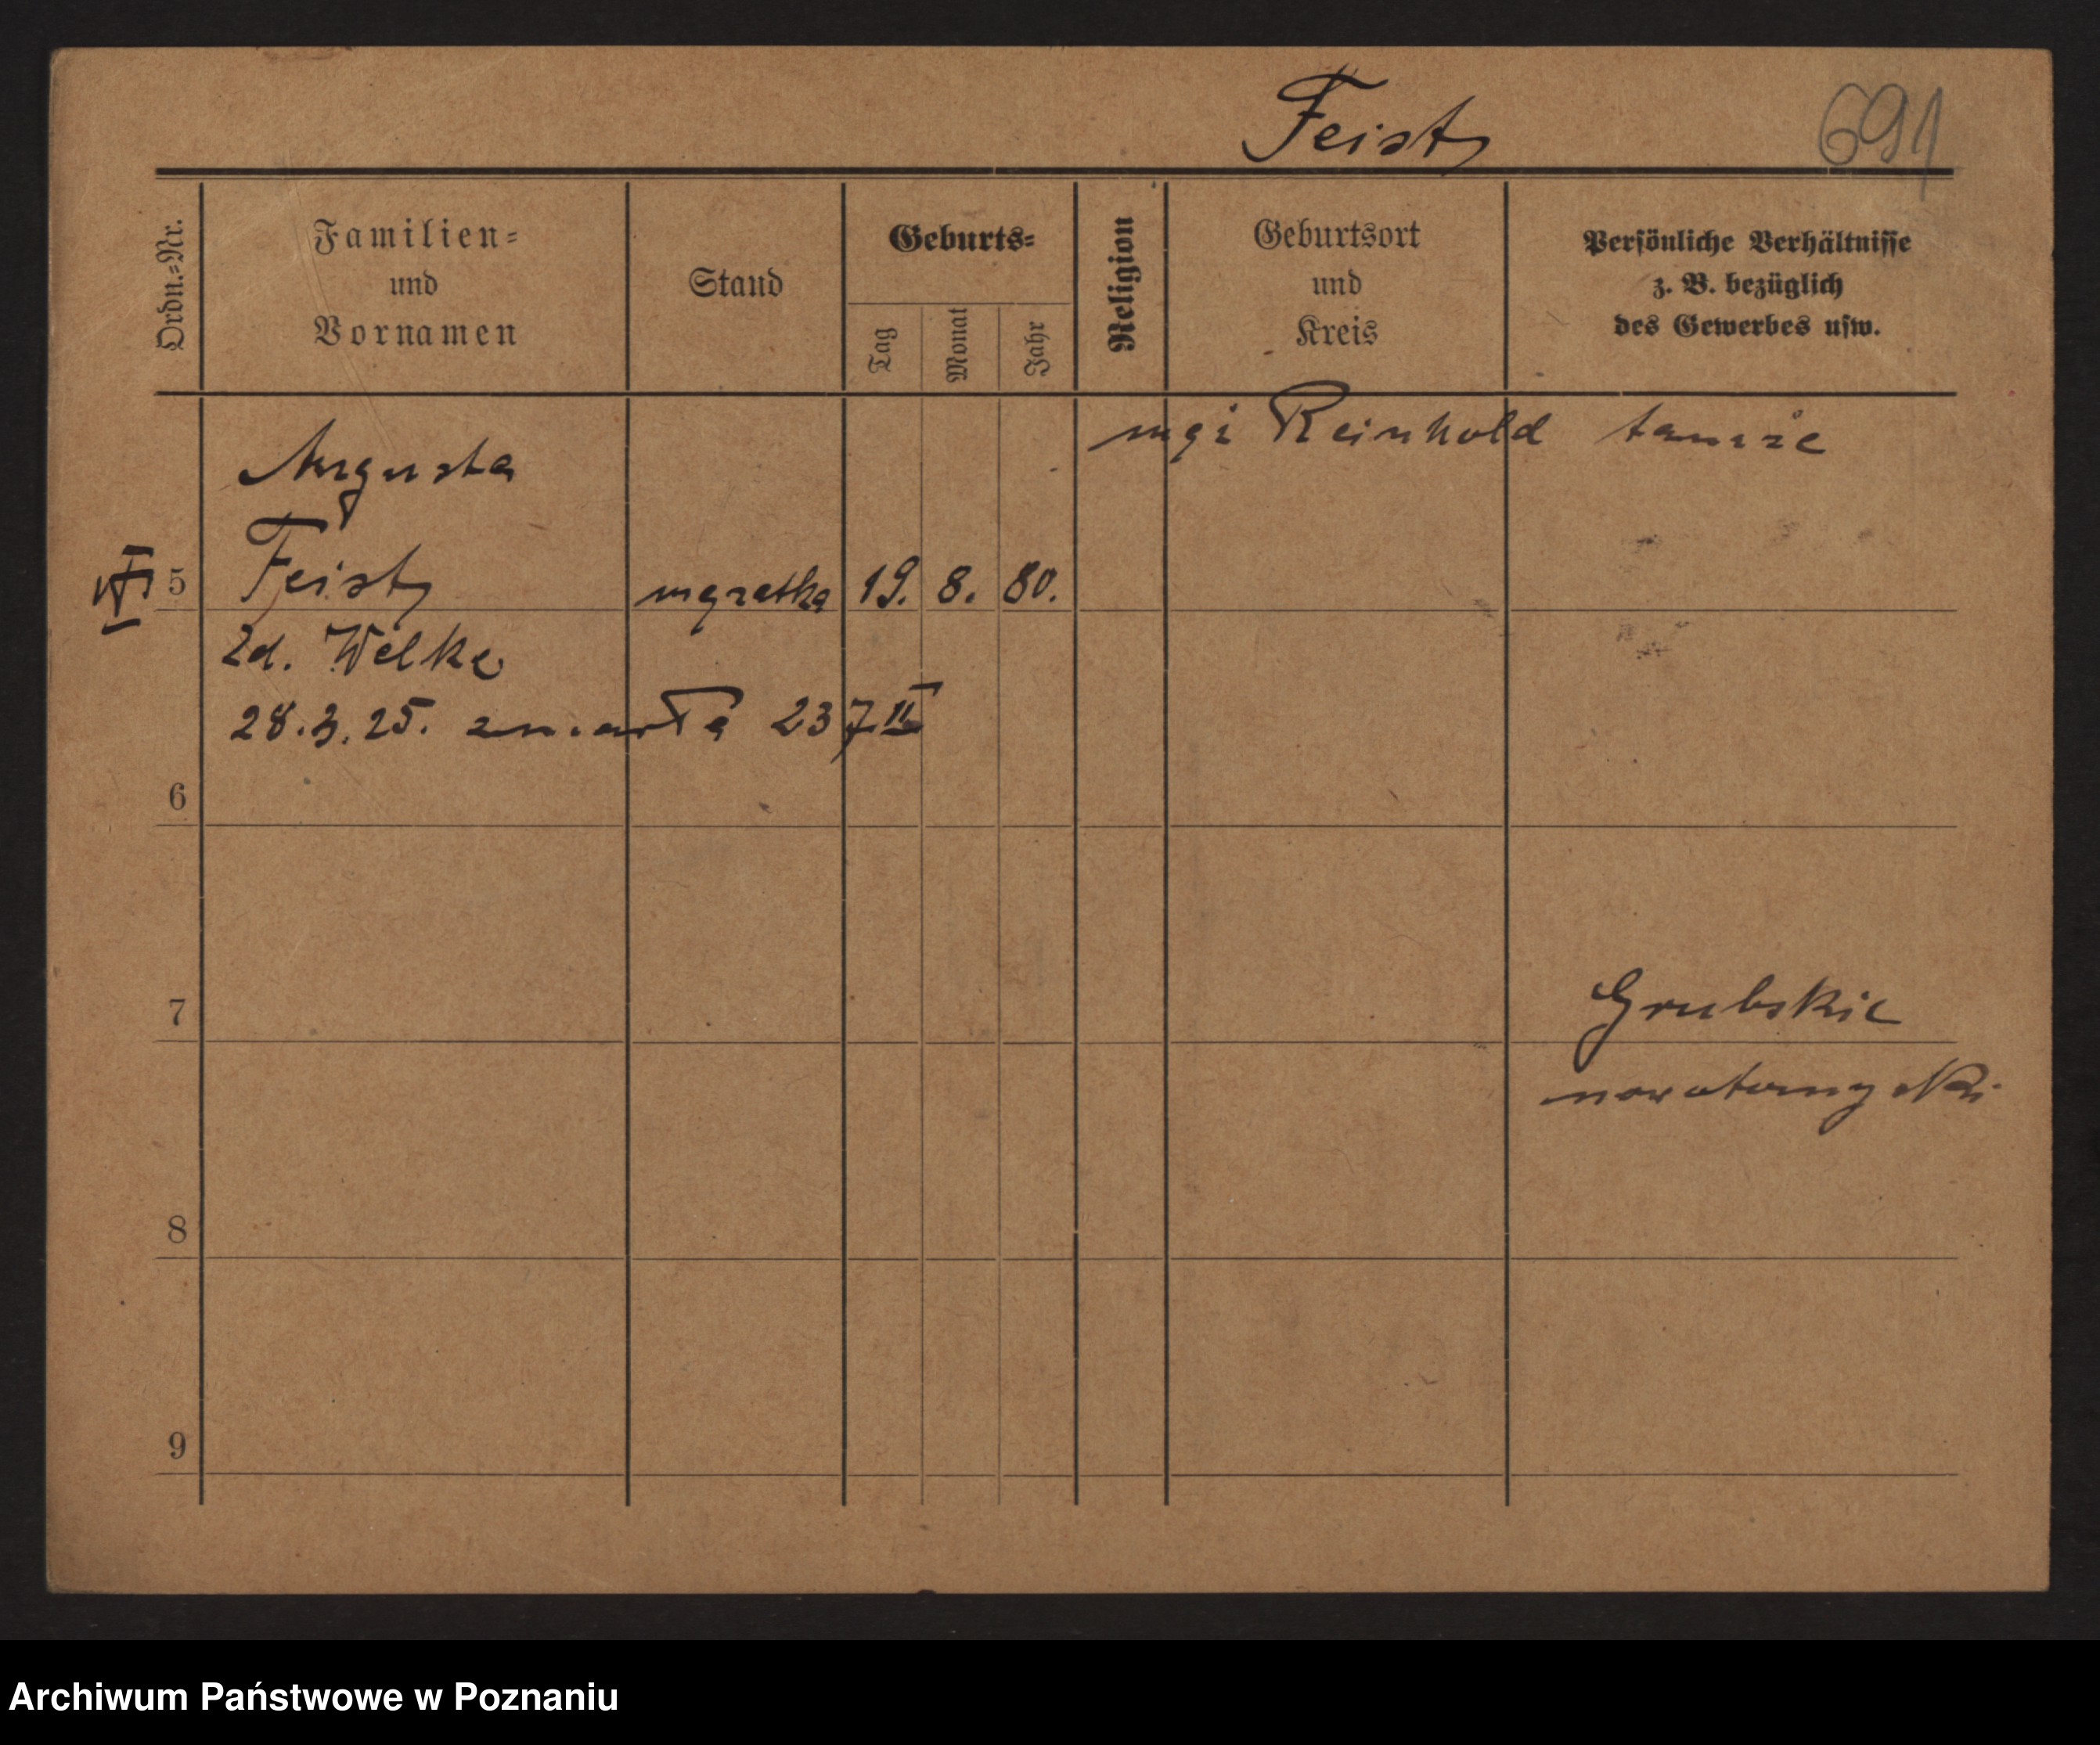 Feist
691
Ordn.-Nr.
Familien-
und
Vornamen
Stand
Geburts-
Tag
Monat
Jahr
Religion
Geburtsort
und
Kreis
Persönliche Verhältnisse
z. B. bezüglich
des Gewerbes usw.
Augusta
Reinhold tamże
5 Feist mężatka 19. 8. 80.
Zd. Welke
28.3.25. zmarła 23 7 II
6
7 Grubskie
nowotomyski
8
9
Archiwum Państwowe w Poznaniu